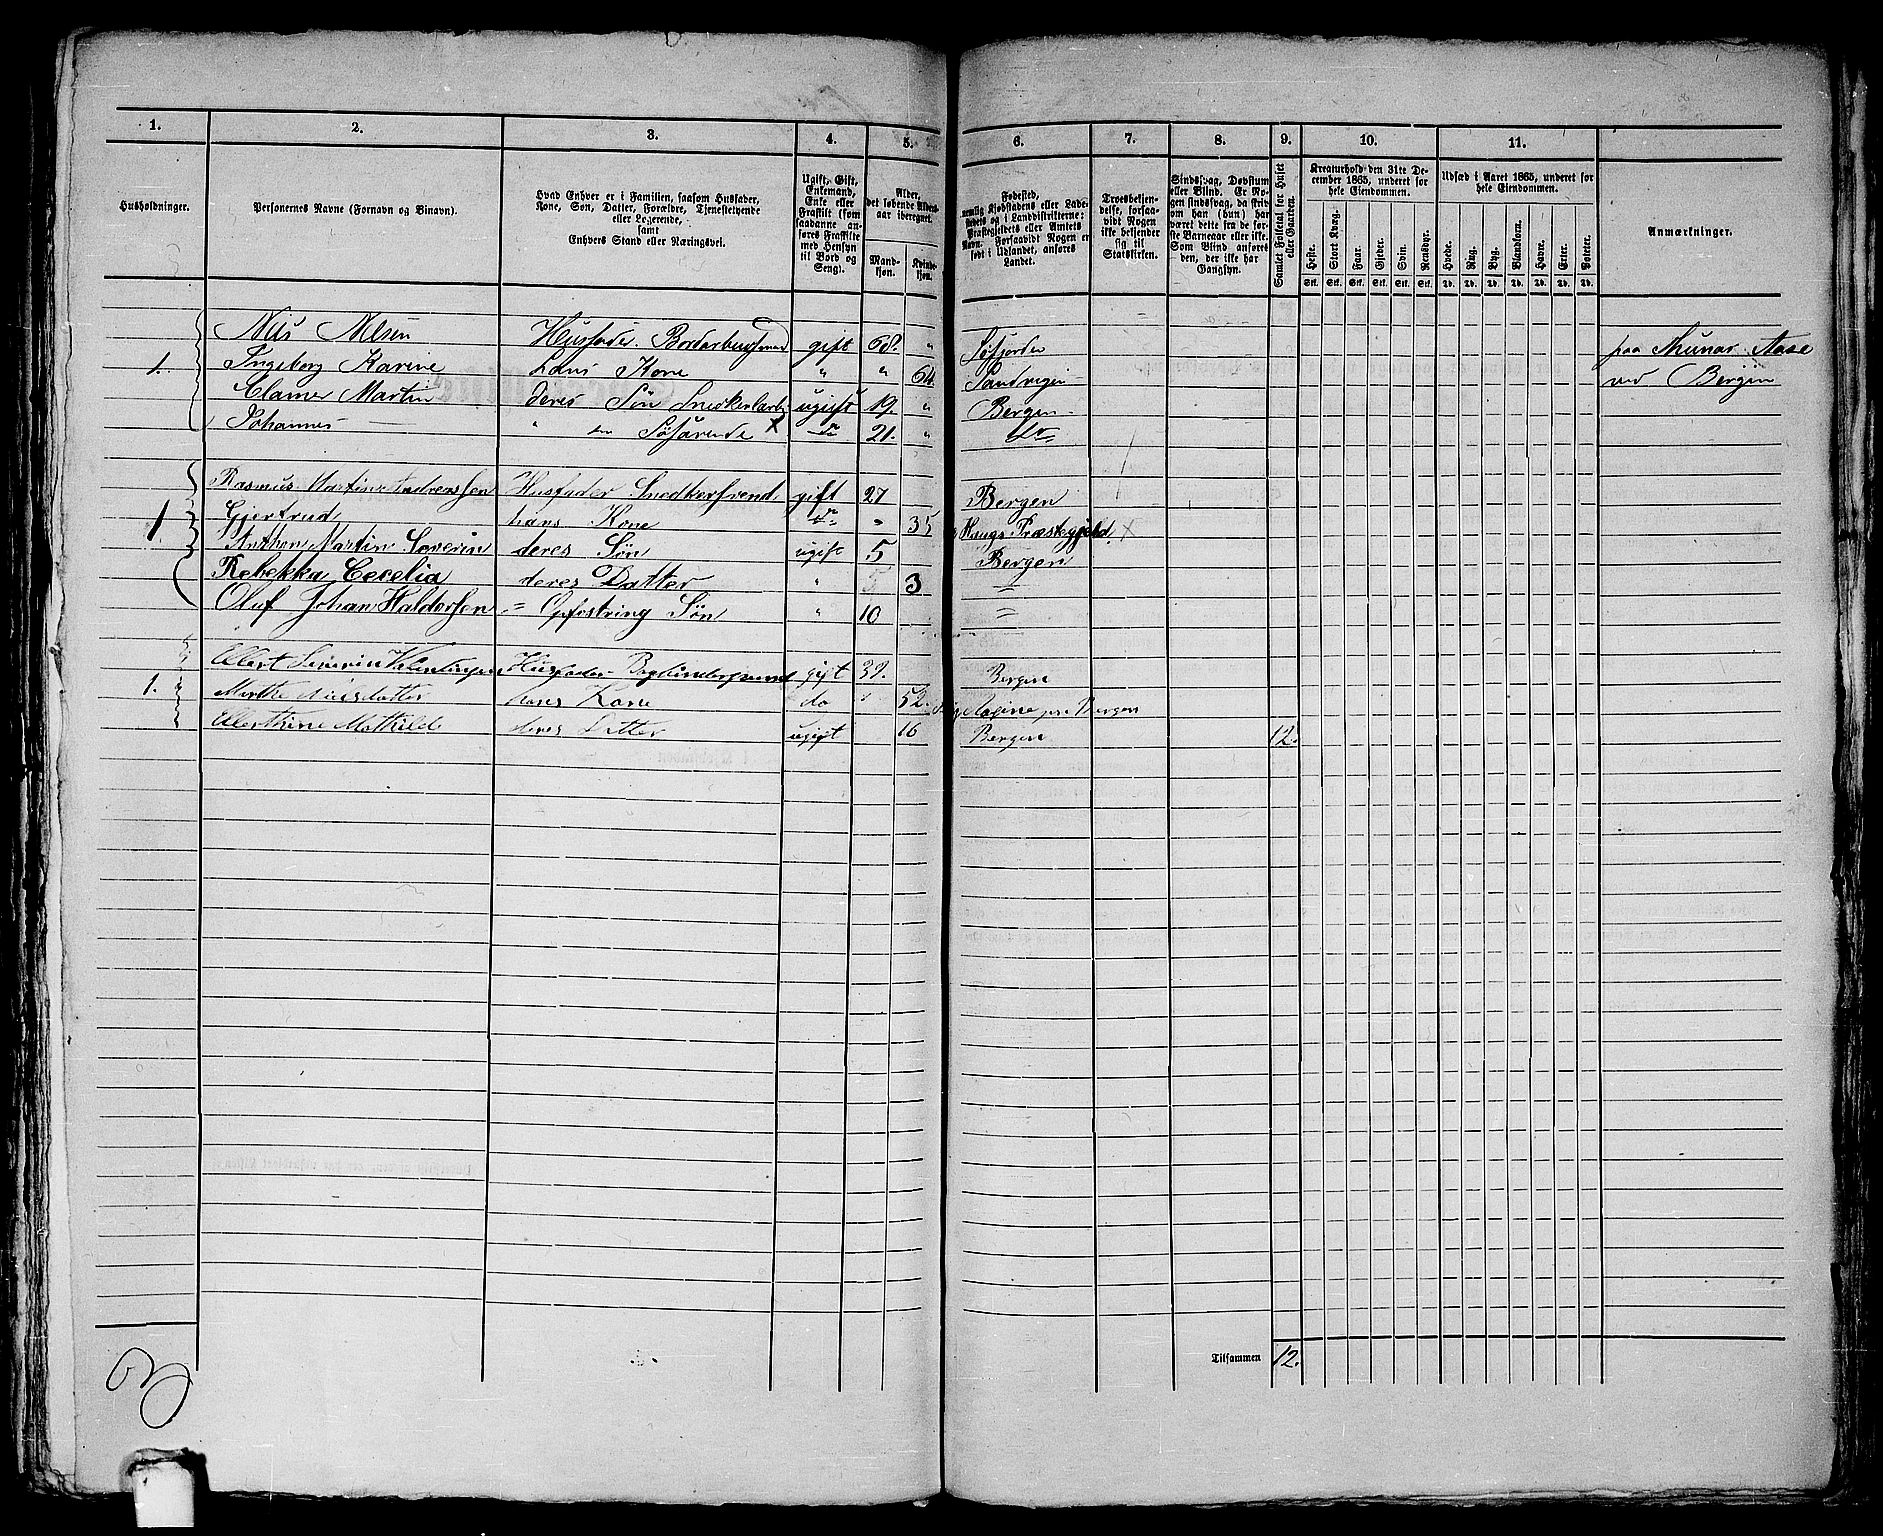 1. 2. 3. 4. 5. 6. 7. 8. 9. 10. 11.
Husholdninger.
Personernes Navne (Fornavn og Binavn).
Hvad Enhver er i Familien, saasom Husfader, Kone, Søn, Datter, Forældre, Tjenestetyende eller Logerende, samt Enhvers Stand eller Næringsvei.
Ugift, Gift, Enkemand, Enke eller Fraskilt (som saadanne anføres Fraskilte med Hensyn til Bord og Seng).
Alder, det løbende Alders-aar iberegnet.
Mandkjøn. Kvindekjøn.
Fødested, nemlig Kjøbstadens eller Ladestedets og i Landdistrikterne: Præstegjeldets eller Amtets Navn. Forsaavidt Nogen er født i Udlandet, anføres Landet.
Troesbekjendelse, forsaavidt Nogen ikke bekjender sig til Statskirken.
Sindssvag, Døvstum eller Blind. Er Nogen sindssvag, da skrives om han (hun) har været dette fra de første Barneaar eller ikke. Som Blind anføres den, der ikke har Gangsyn.
Samlet Folketal for Huset eller Gaarden.
Kreaturhold den 31te December 1865, underet for hele Eiendommen.
Heste. Stort Kvæg. Faar. Gjeder. Svin. Rensdyr.
Udsæd i Aaret 1865, underet for hele Eiendommen.
Hvede. Rug. Byg. Blandkorn. Havre. Erter. Poteter.
Anmærkninger.
Nils Nilsen Husfader gift 68. "
1. Ingeborg Karine Hans Kone " " 64 Sandvigen ved Bergen
Clamer Martin deres Søn ugift 19. " Bergen
Johannes " Søfarende X do 21. " do
Rasmus Martin Andreassen Husfader Snedkersvend gift 27 Bergen
1. Gjertrud hans Kone do " 35 Præstegjeld X
Anthon Martin Severin deres Søn ugift 5 Bergen
Rebekka Cecelia deres Datter " 3 "
Oluf Johan Haldorsen " Opfostring Søn " 10 "
Albert Severin Valentinsen Husfader Bogbindersvend gift 39. Bergen
1. Marthe Nilsdatter hans Kone do " 52. Bergen
Albertine Mathilde deres Datter ugift 16 Bergen 12.
Tilsammen 12.